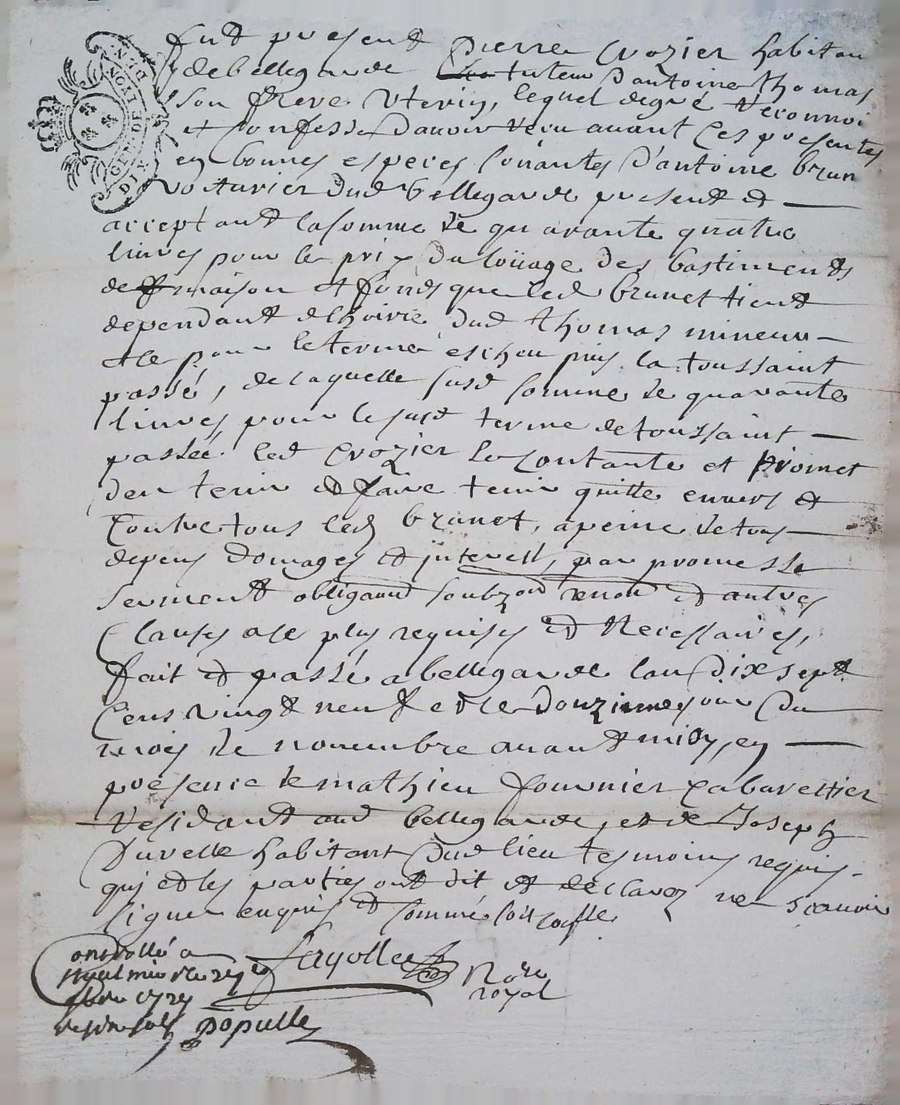 GEN. DE LYON
GEN DIX
fut present Pierre Crozier habitan
de bellegarde tuteur d'antoine thomas
son frere uterin, lequel degré reconnoi
et confesse d'avoir reçu avant ces presentes
en bonnes especes loüantes d'antoine brun
voiturier dud bellegarde present et
acceptant la somme de quarante quatre
livres pour le prix du loüage des bastiments
de maison et fonds que led brunet tient
dependant de lhoirie dud thomas mineur
et le pour le terme eschou la toussaint
passé, de laquelle susd somme de quarante
livres pour le susd terme de toussaint
passée led Crozier se contante et promet
den tenir et faire tenir quitte envers et
contre tous led brunet, a peine de tous
depens domages et interest, par promesse
serment obligaon soubzon renon et autres
Clauses a ce plus requises et Necessaires,
fait et passé a bellegarde lan dix sept
Cens vingt neuf et le douzieme jour du
mois de novembre avant midy, en
presence de mathieu fournier Cabarettier
residant aud bellegarde, et de Joseph
Duvelle habitant dud lieu tesmoins requis
qui et les parties ont dit et declaréz ne scavoir
signer enquis et sommé
ontrollé a
fayolle Nore
royal
populle